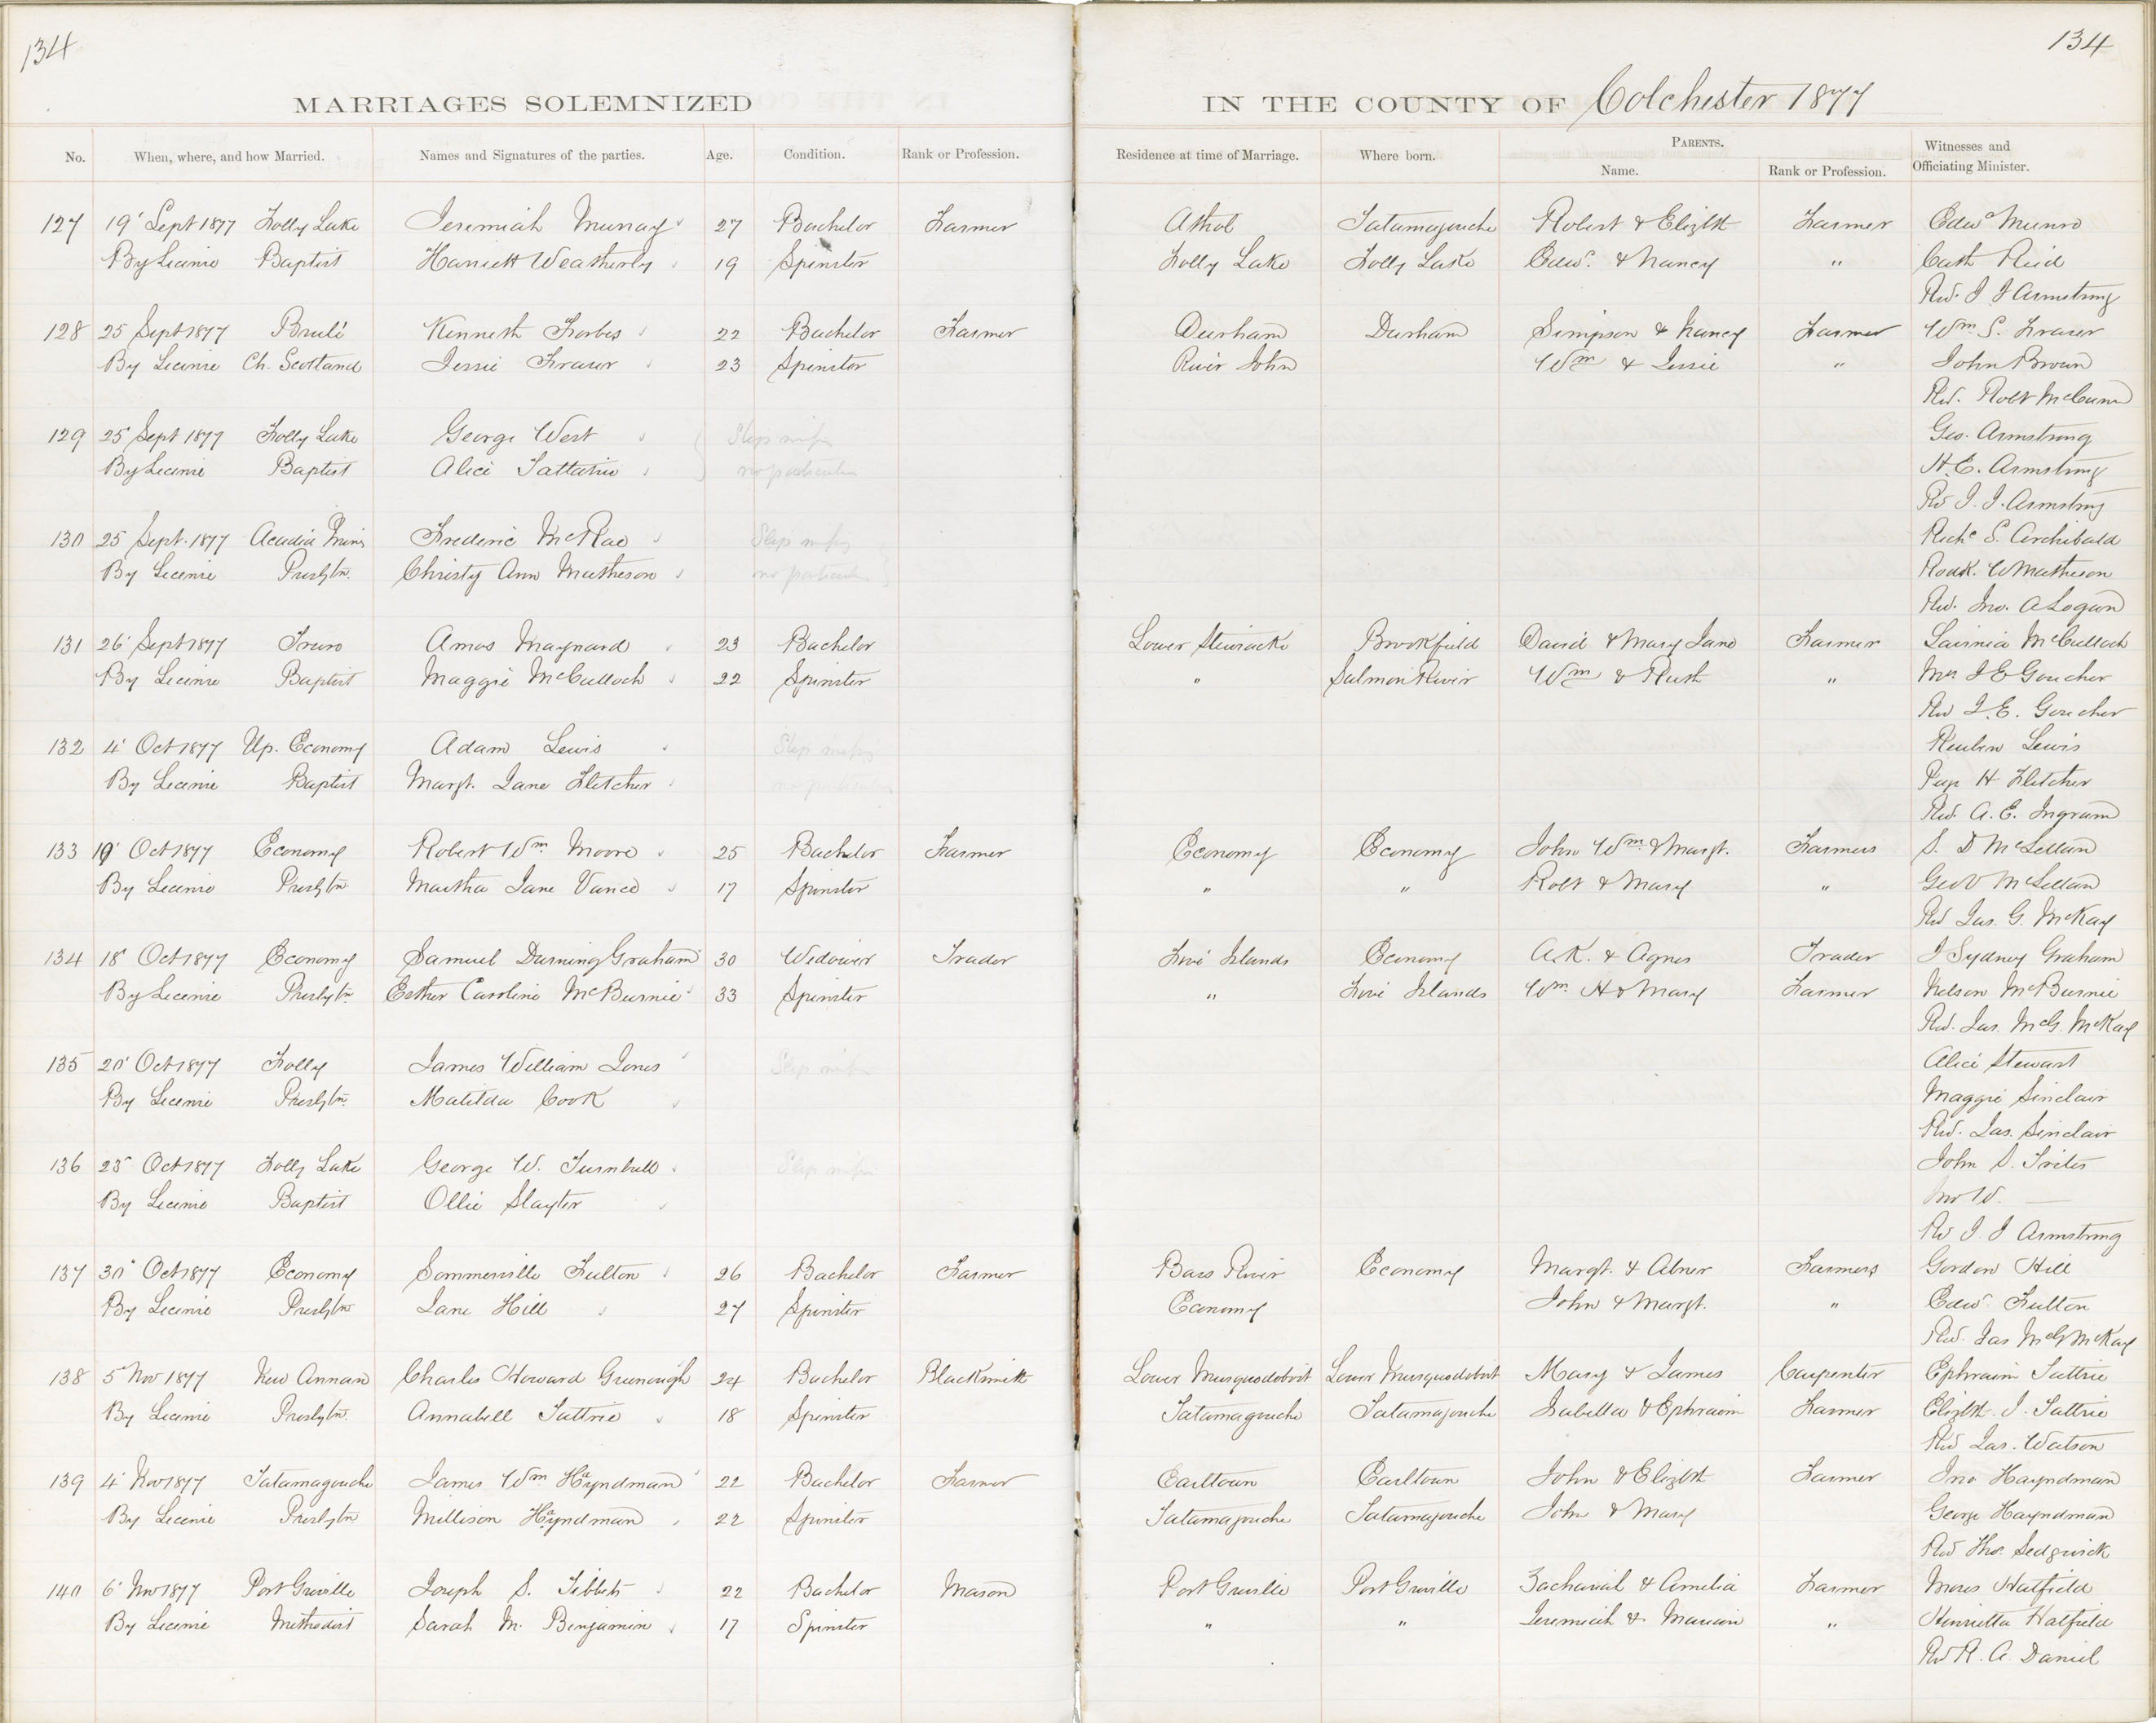 134
134
MARRIAGES SOLEMNIZED IN THE COUNTY OF Colchester 1877
No. When, where, and how Married. Names and Signatures of the parties. Age. Condition. Rank or Profession. Residence at time of Marriage. Where born. PARENTS. Name. Rank or Profession. Witnesses and Officiating Minister.
127 19' Sept 1877 Folly Lake Jeremiah Murray 27 Bachelor Farmer Athol Tatamagouche Robert & Elizbth Farmer Edwd Munro
By Licence Baptist Harriett Weatherby 19 Spinster Folly Lake Folly Lake Edwd. & Nancy " Cath Reid
Rev. J J Armstrong
128 25 Sept 1877 Brulé Kenneth Forbes 22 Bachelor Farmer Durham Durham Simpson & Nancy Farmer Wm S. Fraser
By Licence Ch. Scotland Jessie Fraser 23 Spinster River John Wm & Jessie " John Brown
Rev. Robt McCunn
129 25 Sept 1877 Folly Lake George West Slip missing Geo. Armstrong
By Licence Baptist Alice Tattarie no particulars H. E. Armstrong
Rev J. J. Armstrong
130 25 Sept. 1877 Acadia Mines Frederic McRae Slip missing Richd S. Archibald
By Licence Presbytn. Christy Ann Matheson no particulars Rodk. W Matheson
Rev. Jno. A Logan
131 26' Sept 1877 Truro Amos Maynard 23 Bachelor Lower Stewiacke Brookfield David & Mary Jane Farmer Lavinia McCulloch
By Licence Baptist Maggie McCulloch 22 Spinster " Salmon River Wm & Ruth " Mrs J E Goucher
Rev J. E. Goucher
132 4' Oct 1877 Up. Economy Adam Lewis Slip missing Reuben Lewis
By Licence Baptist Margt. Jane Fletcher no particulars H Fletcher
Rev. A. E. Ingram
133 19' Oct 1877 Economy Robert Wm Moore 25 Bachelor Farmer Economy Economy John Wm & Margt. Farmers S. D McLellan
By Licence Presbytn Martha Jane Vance 17 Spinster " " Robt & Mary " Geo V McLellan
Rev Jas. G. McKay
134 18' Oct 1877 Economy Samuel Durning Graham 30 Widower Trader Five Islands Economy A. K. & Agnes Trader J Sydney Graham
By Licence Presbytn Esther Caroline McBurnie 33 Spinster " Five Islands Wm H & Mary Farmer Nelson McBurnie
Rev. Jas. McG. McKay
135 20' Oct 1877 Folly James William Jones Slip missing Alice Stewart
By Licence Presbytn. Matilda Cook Maggie Sinclair
Rev. Jas. Sinclair
136 25' Oct 1877 Folly Lake George W. Turnbull Slip missing John S. Trites
By Licence Baptist Ollie Slayter W. —
Rev J. J Armstrong
137 30' Oct 1877 Economy Sommerville Fulton 26 Bachelor Farmer Bass River Economy Margt. & Abner Farmers Gordon Hill
By Licence Presbytn Jane Hill 27 Spinster Economy John & Margt. " Edwd. Fulton
Rev. Jas McG McKay
138 5' Nov 1877 New Annan Charles Howard Greenough 24 Bachelor Blacksmith Lower Musquodoboit Lower Musquodoboit Mary & James Carpenter Ephraim Tattrie
By Licence Presbytn. Annabell Tattrie 18 Spinster Tatamagouche Tatamagouche Isabella & Ephraim Farmer Elizbth. J. Tattrie
Rev Jas. Watson
139 4' Nov 1877 Tatamagouche James Wm Hayndman 22 Bachelor Farmer Earltown Earltown John & Elizbth Farmer Jno Hayndman
By Licence Presbytn Millison Hayndman 22 Spinster Tatamagouche Tatamagouche John & Mary George Hayndman
Rev Thos. Sedgwick
140 6' Nov 1877 Port Greville Joseph S. Tibbets 22 Bachelor Mason Port Greville Port Greville Zachariah & Amelia Farmer Moses Hatfield
By Licence Methodist Sarah M. Benjamin 17 Spinster " " Jeremiah & Marian " Henrietta Hatfield
Rev R. A. Daniel